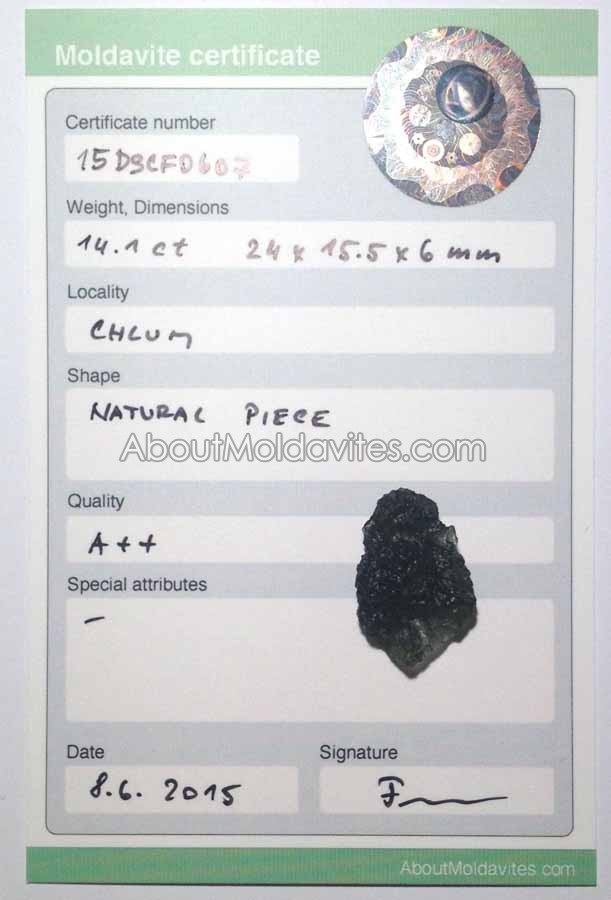 Moldavite certificate
Certificate number
15DSCF0607
Weight, Dimensions
14.1 ct 24 x 15.5 x 6 mm
Locality
CHLUM
Shape
NATURAL PIECE
AboutMoldavites.com
Quality
A++
Special attributes
–
Date
8.6. 2015
Signature
AboutMoldavites.com